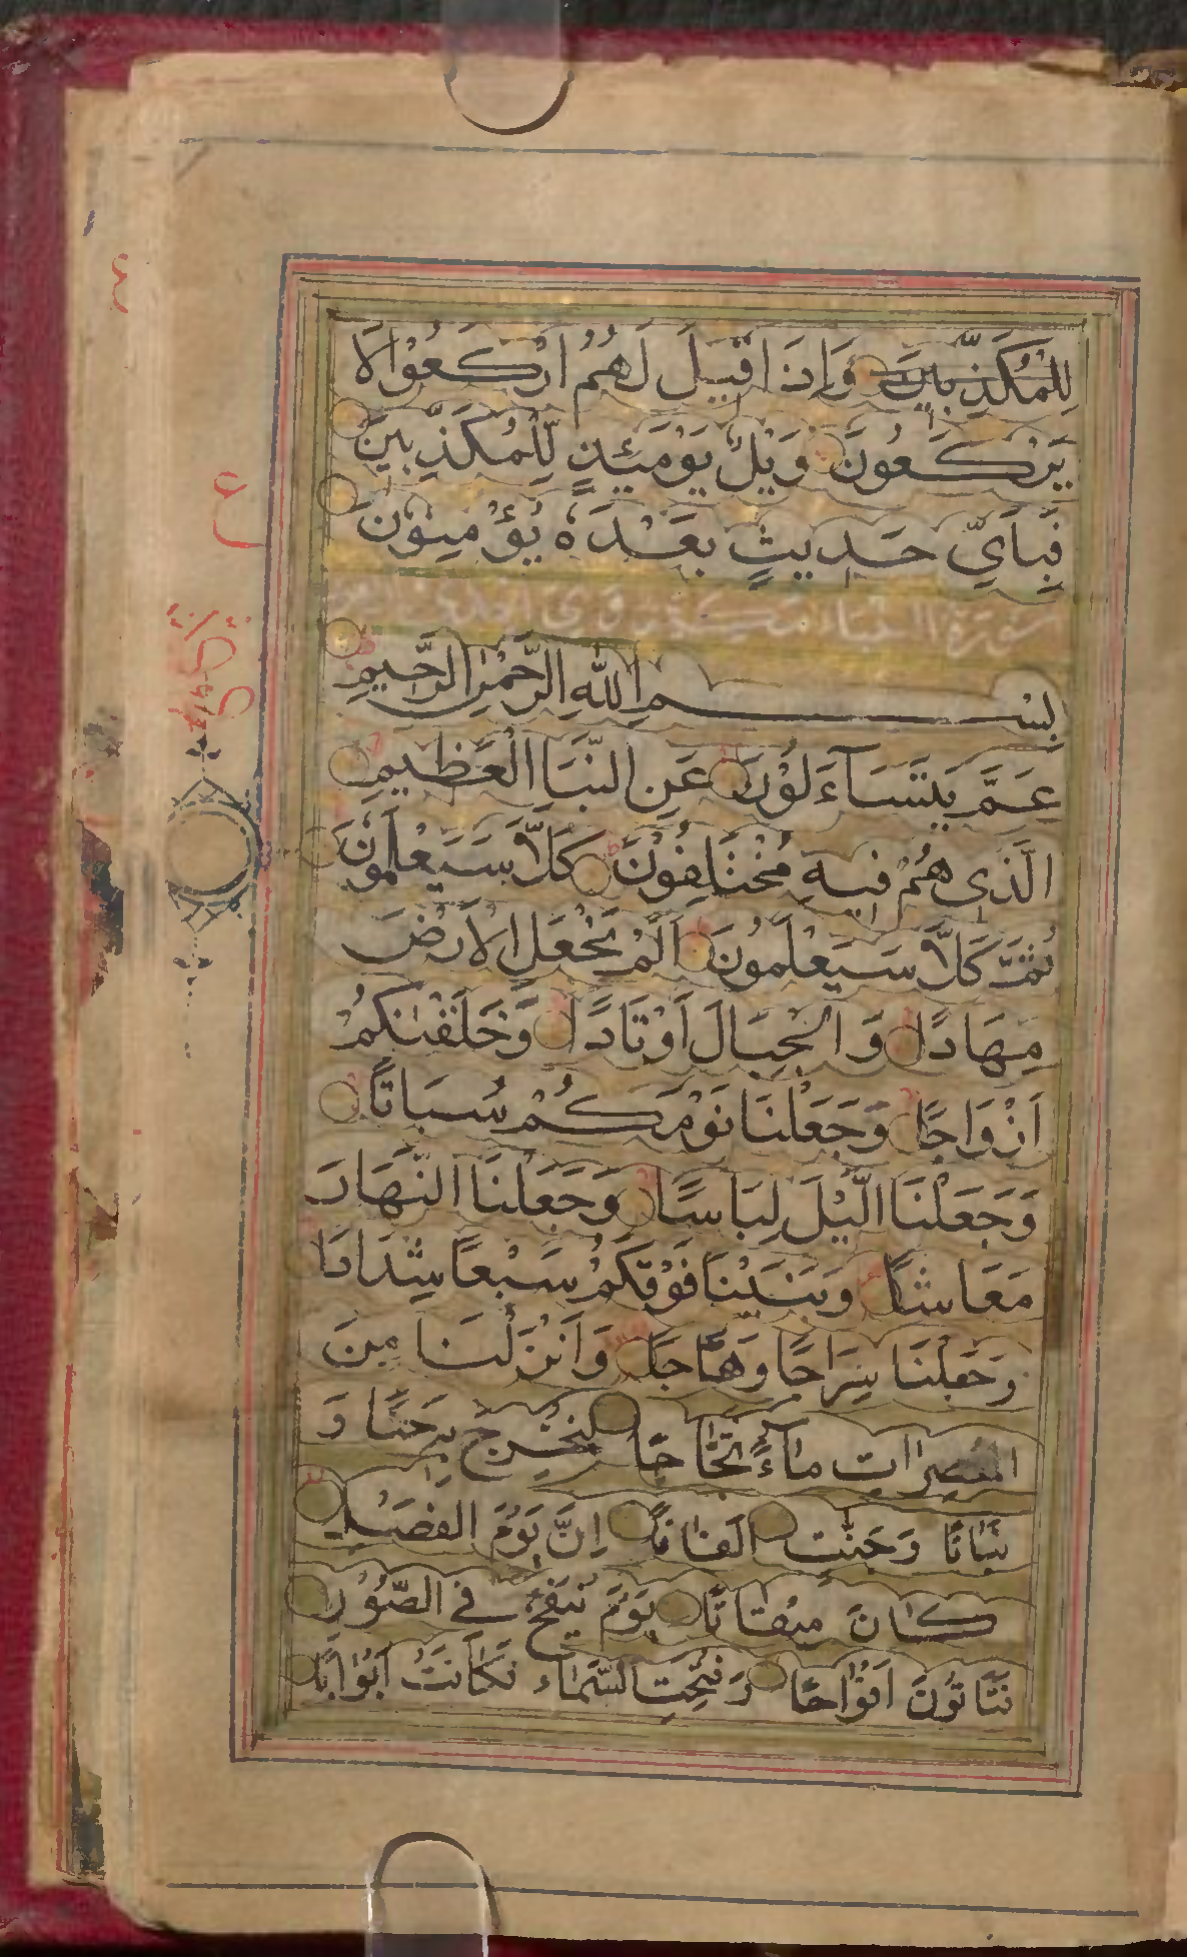 لِلْمُكَذِّبِينَ وَاِذَا قِيلَ لَهُمُ ارْكَعُوْا لَا
يَرْكَعُونَ وَيْلٌ يَوْمَئِذٍ لِّلْمُكَذِّبِينَ
فَبِاَيِّ حَدِيثٍ بَعْدَهٗ يُؤْمِنُوْنَ
سورة النباء مكية وهي
بِسْمِ اللّٰهِ الرَّحْمٰنِ الرَّحِيمِ
عَمَّ يَتَسَآءَلُوْنَ عَنِ النَّبَاِ الْعَظِيمِ
الَّذِى هُمْ فِيهِ مُخْتَلِفُوْنَ كَلَّا سَيَعْلَمُوْنَ
ثُمَّ كَلَّا سَيَعْلَمُونَ اَلَمْ نَجْعَلِ الْاَرْضَ
مِهَادًا وَالْجِبَالَ اَوْتَادًا وَّخَلَقْنٰكُمْ
اَزْوَاجًا وَجَعَلْنَا نَوْمَكُمْ سُبَاتًا
وَجَعَلْنَا الَّيْلَ لِبَاسًا وَجَعَلْنَا النَّهَارَ
مَعَاشًا وَبَنَيْنَا فَوْقَكُمْ سَبْعًا شِدَادًا
وَجَعَلْنَا سِرَاجًا وَهَّاجًا وَاَنْزَلْنَا مِنَ
المعصرات مَآءً ثَجَّاجًا لِنُخْرِجَ بِهٖ حَبًّا وَ
نَبَاتًا وَجَنّٰتٍ اَلْفَافًا اِنَّ يَوْمَ الْفَصْلِ
كَانَ مِيْقَاتًا يَوْمَ يُنْفَخُ فِي الصُّوْرِ
فَتَاْتُوْنَ اَفْوَاجًا وَفُتِحَتِ السَّمَاءُ فَكَانَتْ اَبْوَابًا
ع
٤